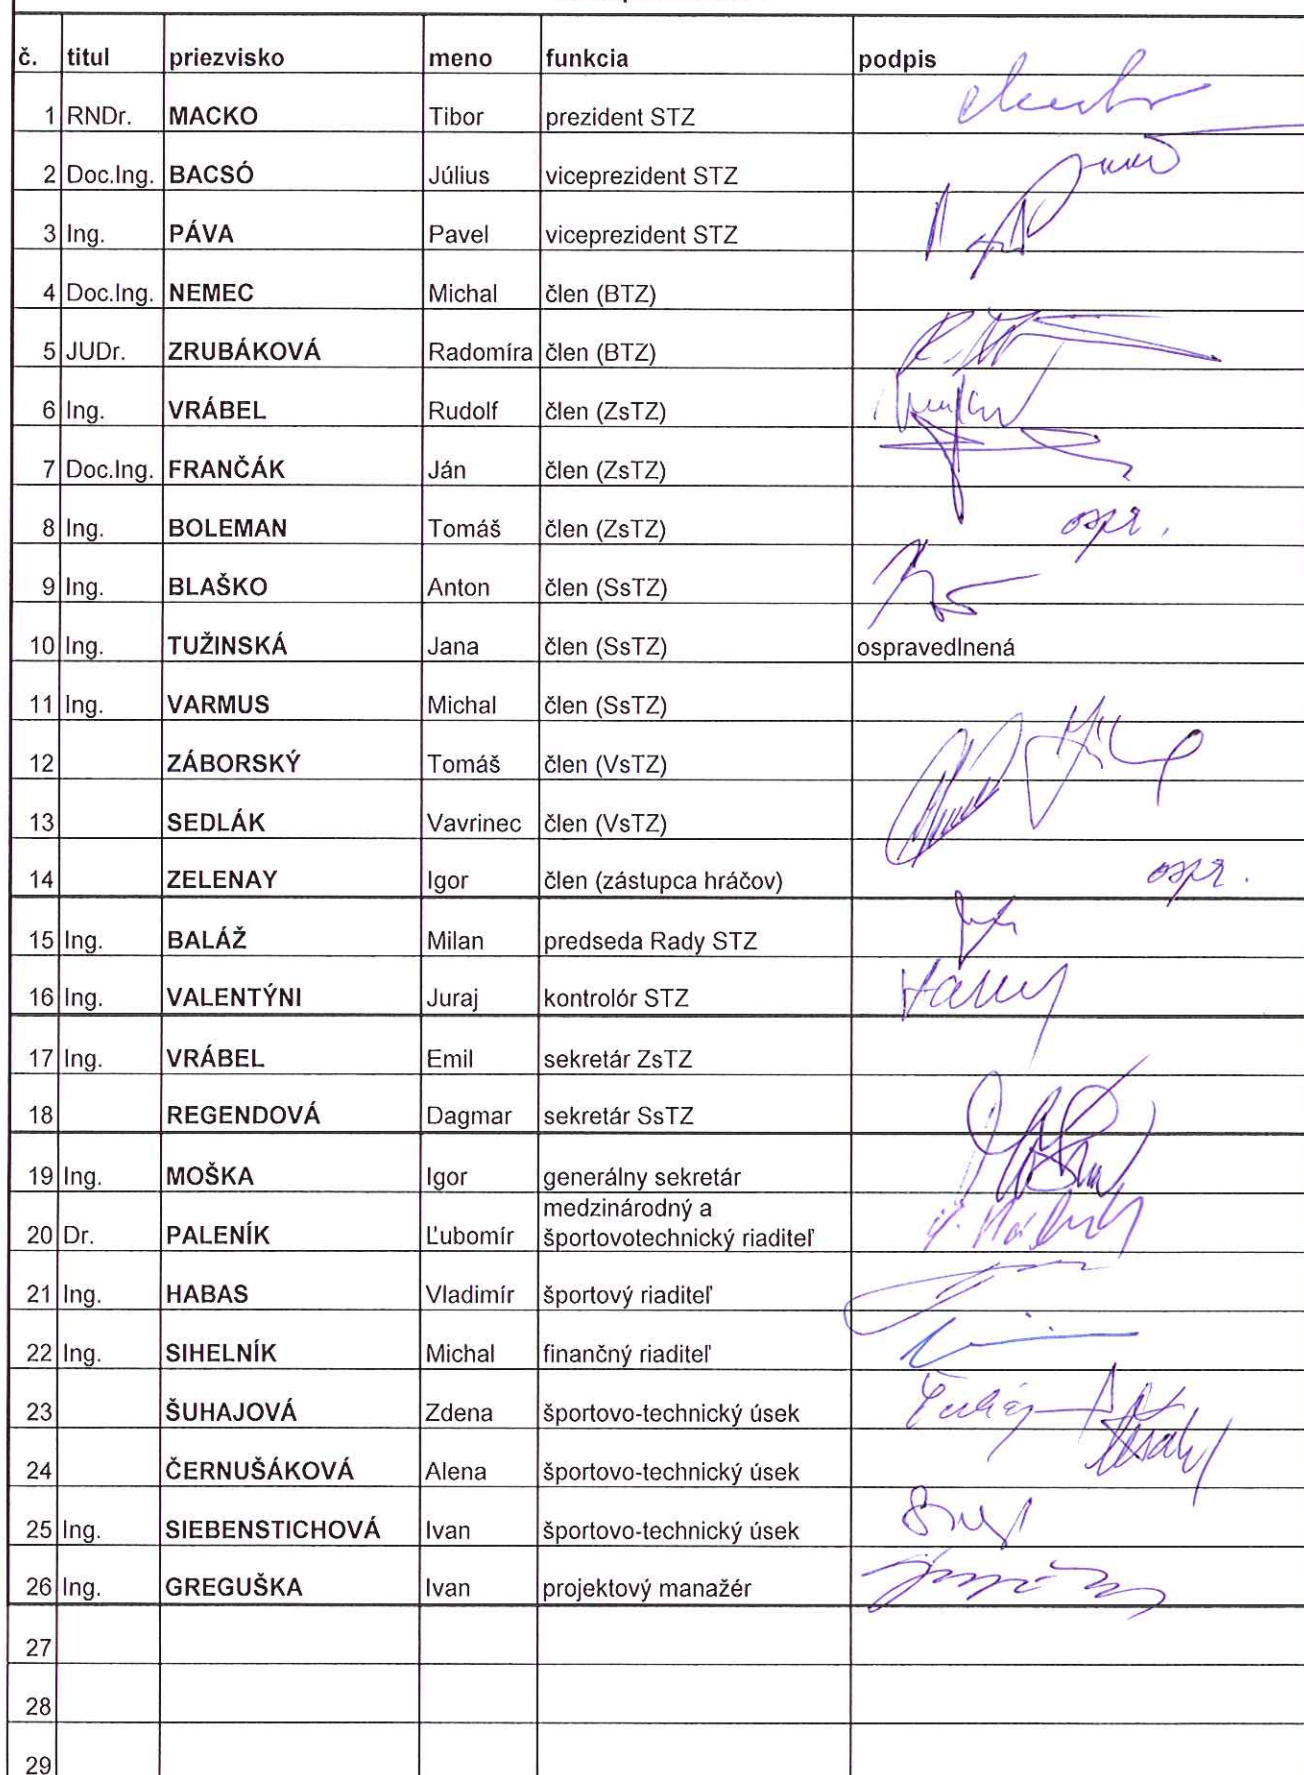 č. titul priezvisko meno funkcia podpis
1 RNDr. MACKO Tibor prezident STZ
2 Doc.Ing. BACSÓ Július viceprezident STZ
3 Ing. PÁVA Pavel viceprezident STZ
4 Doc.Ing. NEMEC Michal člen (BTZ)
5 JUDr. ZRUBÁKOVÁ Radomíra člen (BTZ)
6 Ing. VRÁBEL Rudolf člen (ZsTZ)
7 Doc.Ing. FRANČÁK Ján člen (ZsTZ)
8 Ing. BOLEMAN Tomáš člen (ZsTZ) ospr.
9 Ing. BLAŠKO Anton člen (SsTZ)
10 Ing. TUŽINSKÁ Jana člen (SsTZ) ospravedlnená
11 Ing. VARMUS Michal člen (SsTZ)
12 ZÁBORSKÝ Tomáš člen (VsTZ)
13 SEDLÁK Vavrinec člen (VsTZ)
14 ZELENAY Igor člen (zástupca hráčov) ospr.
15 Ing. BALÁŽ Milan predseda Rady STZ
16 Ing. VALENTÝNI Juraj kontrolór STZ
17 Ing. VRÁBEL Emil sekretár ZsTZ
18 REGENDOVÁ Dagmar sekretár SsTZ
19 Ing. MOŠKA Igor generálny sekretár
medzinárodný a
20 Dr. PALENÍK Ľubomír športovotechnický riaditeľ
21 Ing. HABAS Vladimír športový riaditeľ
22 Ing. SIHELNÍK Michal finančný riaditeľ
23 ŠUHAJOVÁ Zdena športovo-technický úsek
24 ČERNUŠÁKOVÁ Alena športovo-technický úsek
25 Ing. SIEBENSTICHOVÁ Ivan športovo-technický úsek
26 Ing. GREGUŠKA Ivan projektový manažér
27
28
29